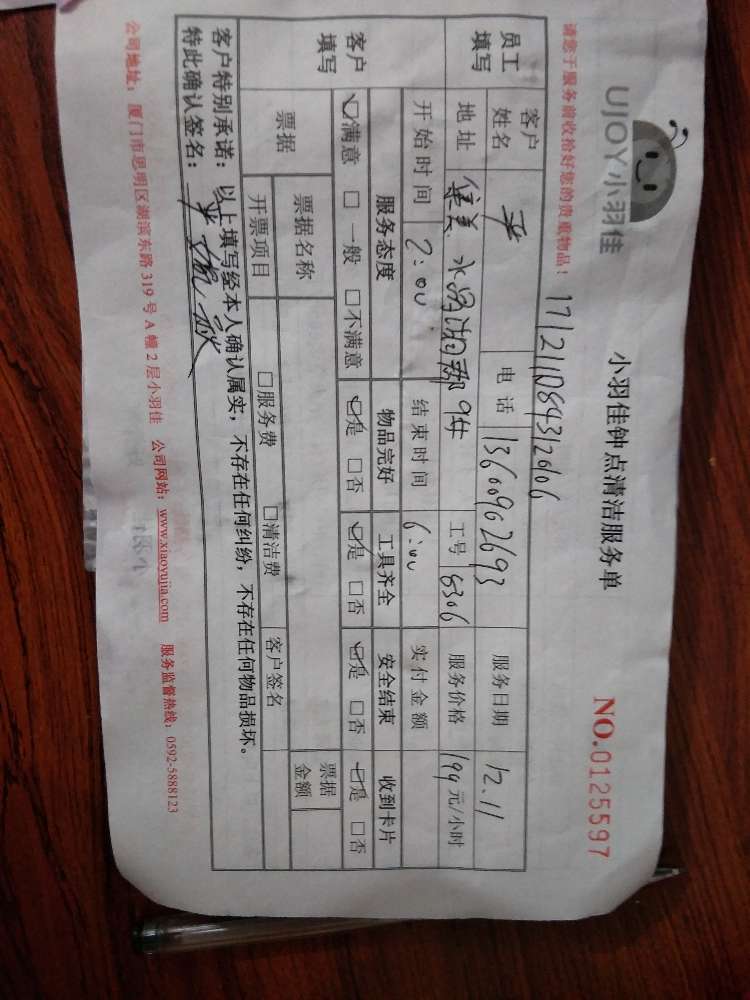 UJOY小羽佳
小羽佳钟点清洁服务单
NO.0125597
请您于服务前收拾好您的贵重物品！
171211084312606
员工填写 客户姓名 电话 13600902693 服务日期 12.11
地址 集美 水晶湖郡 工号 6306 服务价格 199 元/小时
开始时间 2:00 结束时间 6:00 实付金额
客户填写 服务态度 物品完好 工具齐全 安全结束 收到卡片
☑满意 □一般 □不满意 ☑是 □否 ☑是 □否 ☑是 □否 ☑是 □否
票据 票据名称 票据金额
开票项目 □服务费 □清洁费 客户签名
客户特别承诺：以上填写经本人确认属实，不存在任何纠纷，不存在任何物品损坏。
特此确认签名：
公司地址：厦门市思明区湖滨东路 319 号 A 幢 2 层小羽佳 公司网站：www.xiaoyujia.com 服务监督热线：0592-5888123